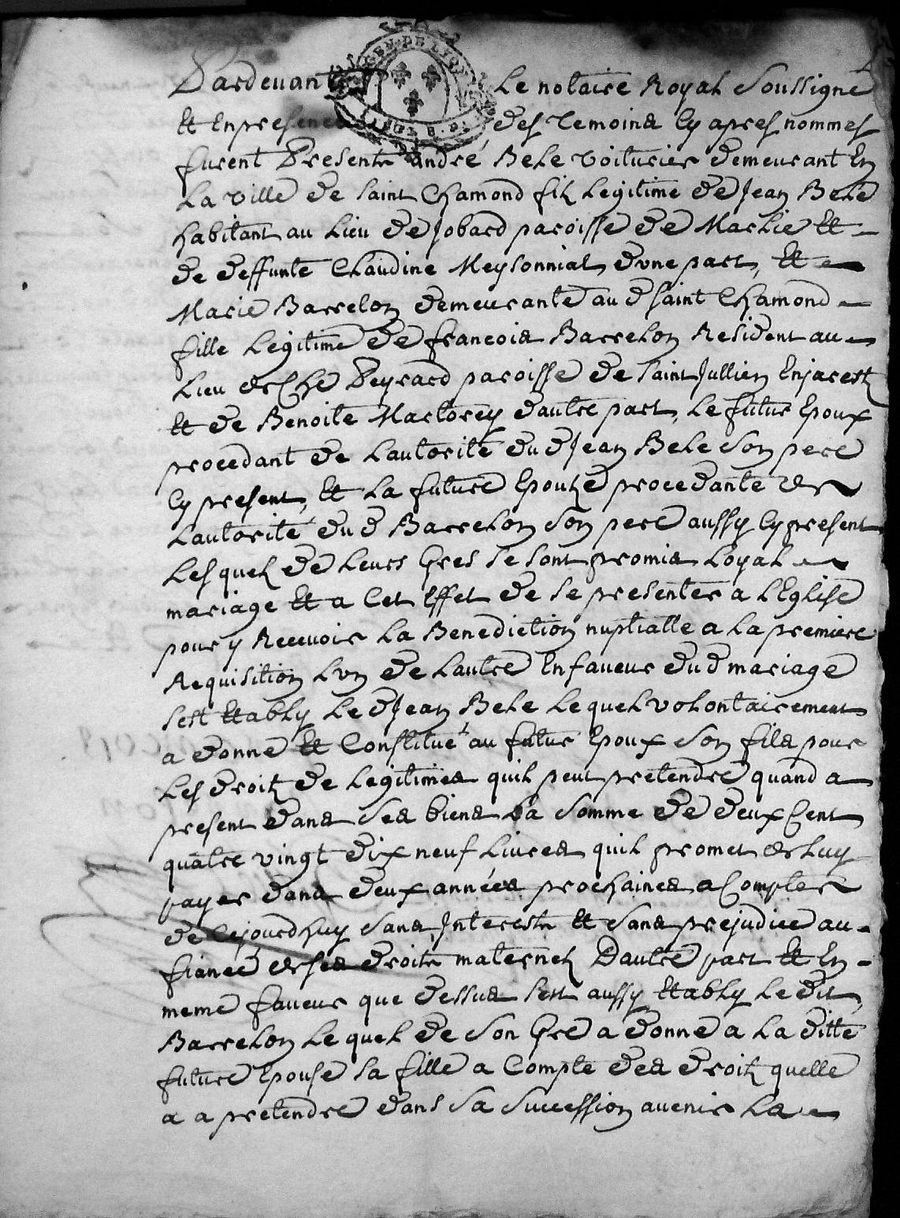 GEN. DE LION
Pardevant Le notaire Royal Soussigné
Et En presence des Temoins Cy apres nommes
furent Presents André Bele voiturier demeurant En
La ville de Saint Chamond fils Legitime de Jean Bele
habitant au Lieu de Jobard paroisse de Marlie Et
de deffunte Claudine Meysonnial dune part, Et
Marie Barrelon demeurante aud Saint Chamond
fille Legitime de francois Barrelon Resident au
Lieu de Chez Peyrard paroisse de Saint Jullien En Jarest
Et de Benoite Martorey dautre part, Le futur Epoux
procedant de Lautorité dud Jean Bele Son pere
Cy present, Et La future Epouze procedante de
Lautorité dud Barrelon Son pere aussy Cy present
Lesquels de Leurs Gres Se Sont promis Loyal
mariage Et a Cet Effet de Se presenter a LEglise
pour y Recevoir La Benediction nuptialle a La premiere
Requisition Lun de Lautre En faveur dud mariage
Sest Etably Led Jean Bele Lequel volontairement
a donné Et Constitué au futur Epoux Son fils pour
Les droits de Legitimes quil peut pretendre quand a
present dans Ses biens La Somme de deux Cent
quatre vingt dix neuf Livres quil promet de Luy
payer dans deux années prochaines a Compter
de Cejourdhuy Sans Interests Et Sans prejudice au
fiancé de Ses droits maternels Dautre part Et En
meme faveur que dessus Sest aussy Etably Ledit
Barrelon Lequel de Son Gré a donné a La ditte
future Epouse Sa fille a Compte des droits quelle
a a pretendre dans Sa Succession avenir La